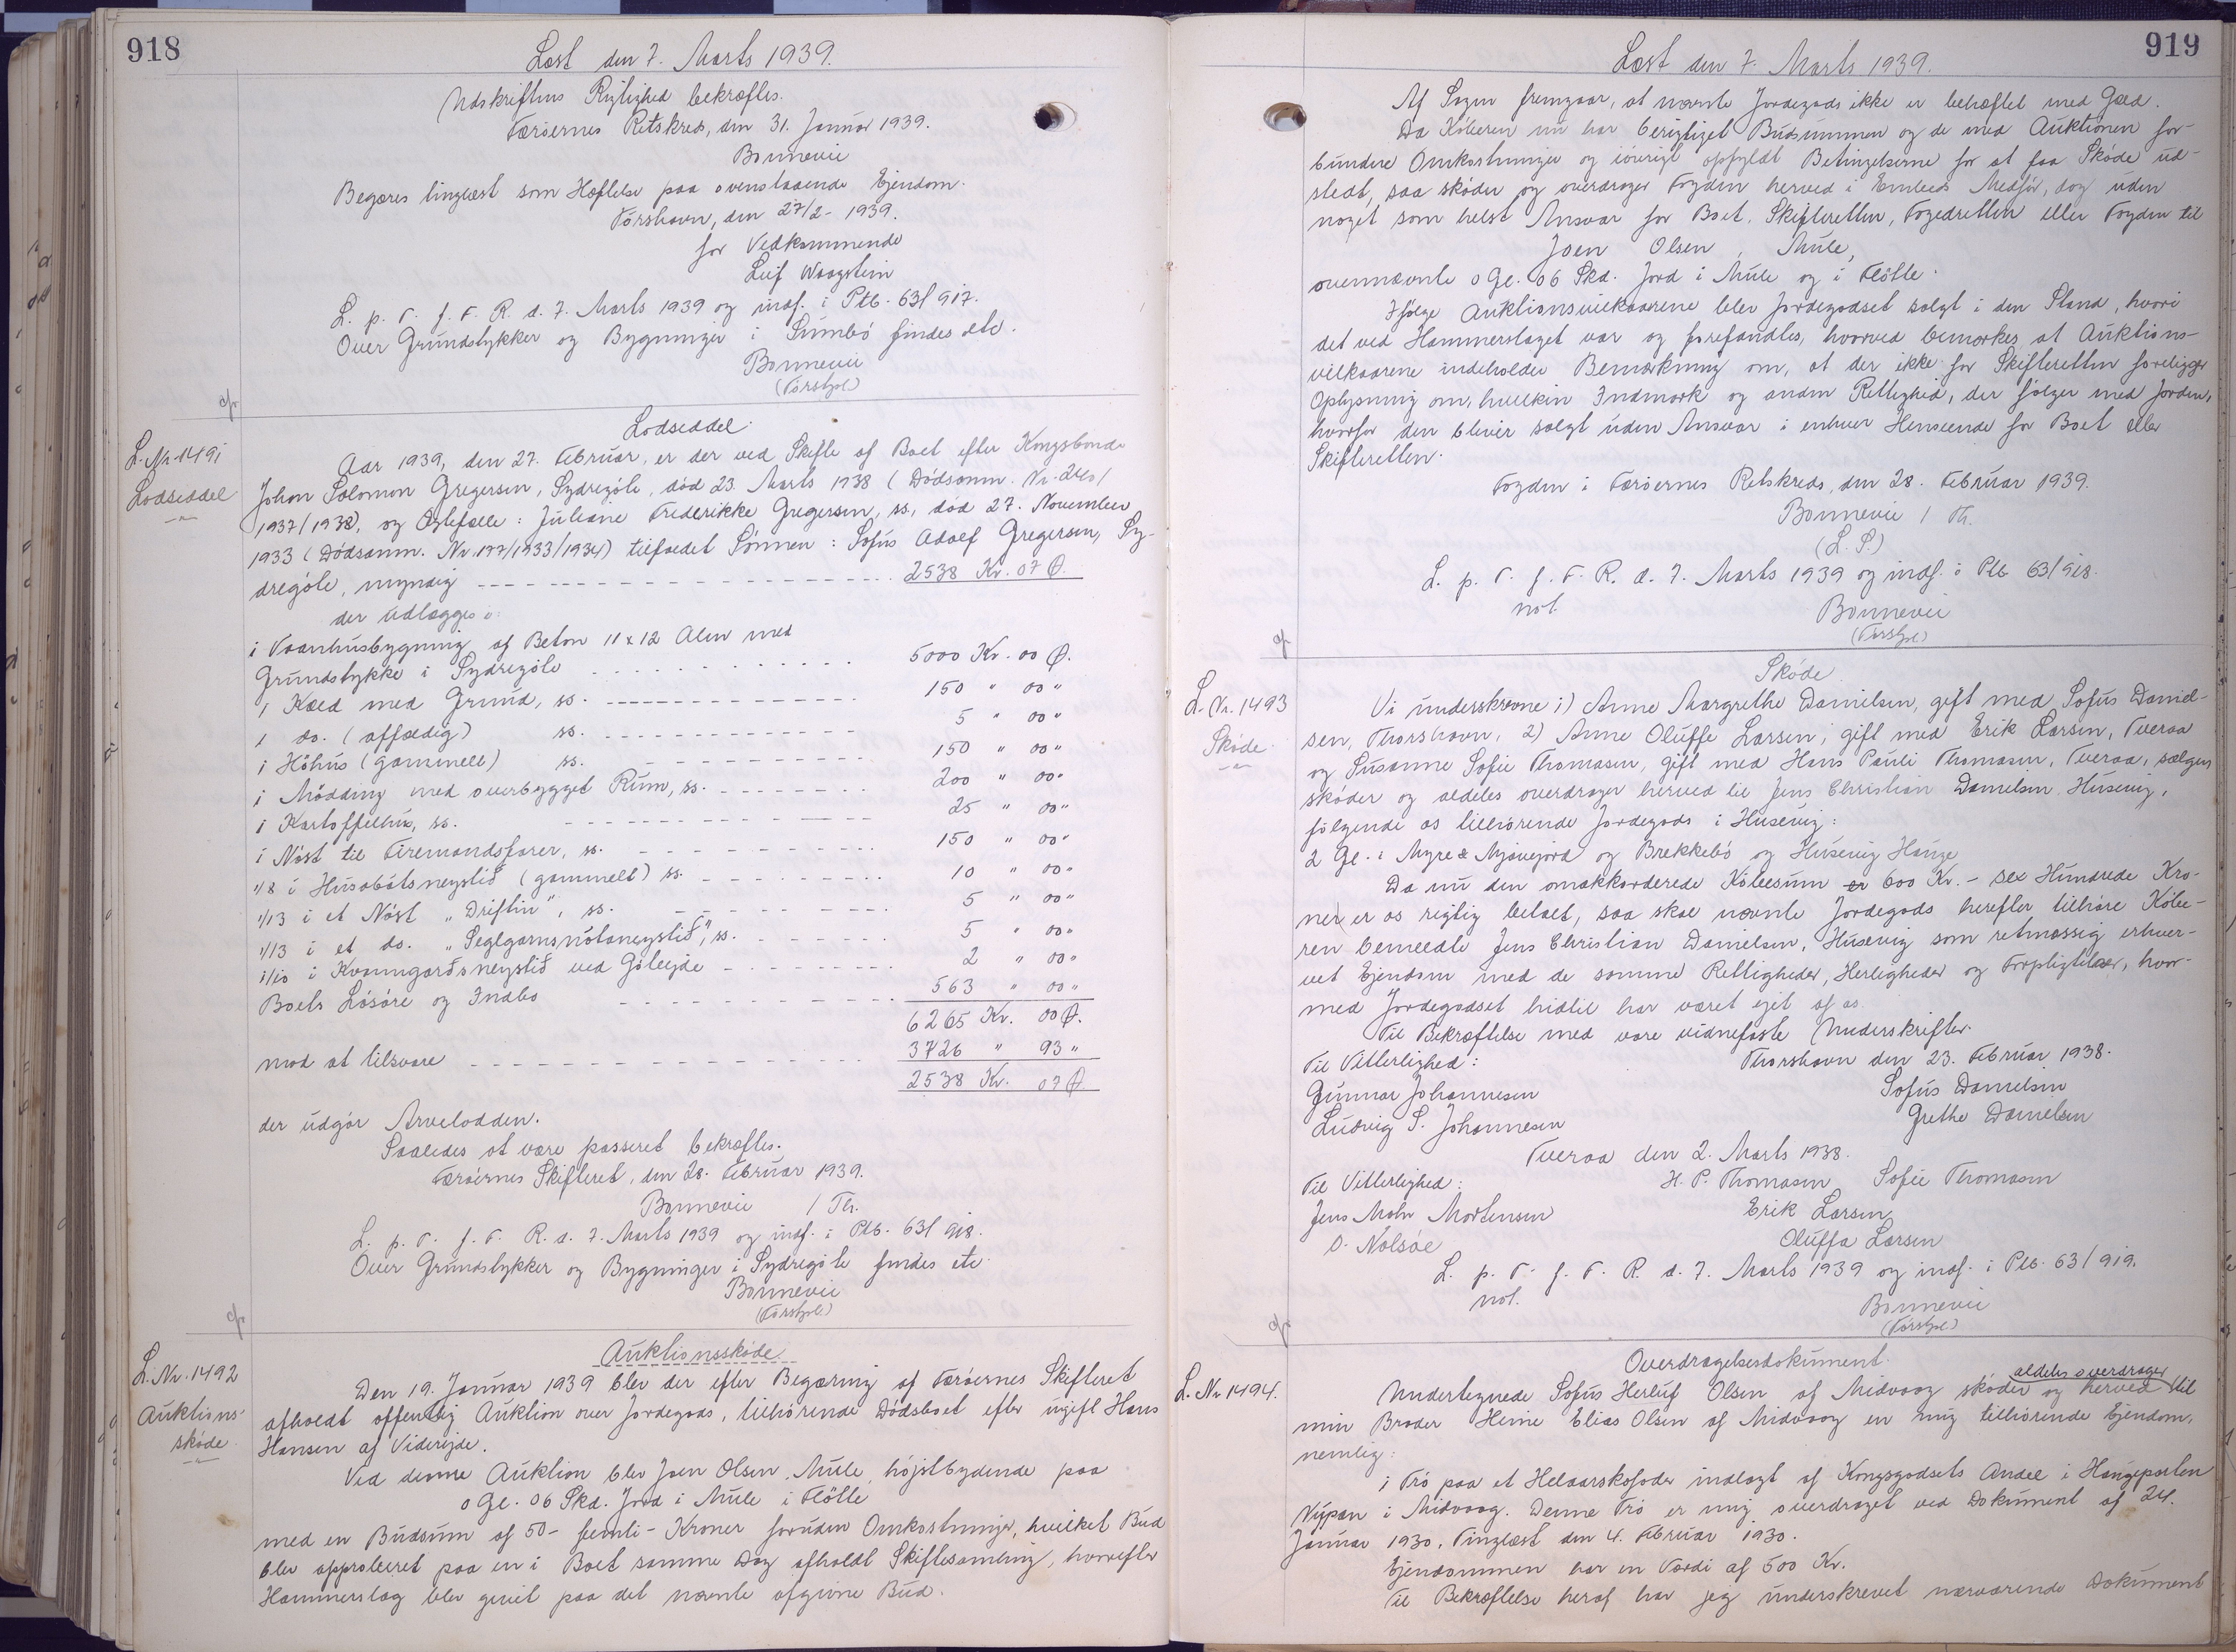 918
Læst den 7. Marts 1939.
Udskriftens Rigtighed bekræftes.
Færøernes Retskreds, den 31. Januar 1939.
Bonnevie
Begæres tinglæst som Hæftelse paa ovenstaaende Ejendom.
Tórshavn, den 27/2 - 1939.
for Vedkommende
Leif Waagstein
L. p. T. f. F. R. d. 7. Marts 1939 og indf. i Ptb. 63/917.
Over Grundstykker og Bygninger i Sumbø findes etc.
Bonnevie
(Førstgl)
L. Nr. 1491
Lodseddel
Lodseddel.
Aar 1939, den 27. Februar, er der ved Skifte af Boet efter Kongsbonde
Johan Solomon Gregersen, Sydregøte, død 23. Marts 1938 (Dødsanm. Nr.
1937/1938), og Ægtefælle: Juliane Frederikke Gregersen, ss, død 27. November
1933 (Dødsanm. Nr. 177/1933/1934) tilfaldet Sønnen: Sofus Adolf Gregersen, Sy-
dregøte, myndig - - - 2538 Kr. 07 Ø.
der udlægges:
1 Vaanhusbygning af Beton 11 x 12 Alen med
Grundstykke i Sydregøte - - - 5000 Kr. 00 Ø.
1 Kæld med Grund, ss. - - - 150 " 00 "
1 do. (affældig) ss. - - - 5 " 00 "
1 Høhus (gammelt) ss. - - - 150 " 00 "
1 Mødding med overbygget Rum, ss. - - - 200 " 00 "
1 Kartoffelhus, ss. - - - 25 " 00 "
1 Nøst til Firemandsfarer, ss. - - - 150 " 00 "
1/8 i Husabátsneystið (gammelt) ss. - - - 10 " 00 "
1/13 i et Nøst "Driftin", ss. - - - 5 " 00 "
1/13 i et do. "Seglgarnsnótaneystið", ss. - - - 5 " 00 "
1/10 i Kvanngarðsneystið ved Gøteejde - - - 2 " 00 "
Boets Løsøre og Indbo - - - 563 " 00 "
6265 Kr. 00 Ø.
mod at tilsvare - - - 3726 " 93 "
2538 Kr. 07 Ø.
der udgør Arvelodden.
Saaledes at være passeret bekræftes.
Færøernes Skifteret, den 28. Februar 1939.
Bonnevie / Th.
L. p. T. f. F. R. d. 7. Marts 1939 og indf. i Ptb. 63/918.
Over Grundstykker og Bygninger i Sydregøte findes etc.
Bonnevie
(Førstgl)
L. Nr. 1492
Auktions-
skøde
Auktionsskøde.
Den 19. Januar 1939 blev der efter Begæring af Færøernes Skifteret
afholdt offentlig Auktion over Jordegods, tilhørende Dødsboet efter ugift Hans
Hansen af Viderejde.
Ved denne Auktion blev Joen Olsen, Mule, højstbydende paa
0 Gl. 06 Skd. Jord i Mule i Fløtte
med en Budsum af 50 - femti - Kroner foruden Omkostninger, hvilket Bud
blev approberet paa en i Boet samme Dag afholdt Skiftesamling, hvorefter
Hammerslag blev givet paa det nævnte afgivne Bud.
919
Læst den 7. Marts 1939.
Af Sagen fremgaar, at nævnte Jordegods ikke er behæftet med Gæld.
Da Køberen nu har berigtiget Budsummen og de med Auktionen for-
bundne Omkostninger og iøvrigt opfyldt Betingelserne for at faa Skøde ud-
stedt, saa skøder og overdrager Fogden herved i Embeds Medfør, dog uden
noget som helst Ansvar for Boet, Skifteretten, Fogedretten eller Fogden til
Joen Olsen, Mule,
ovennævnte 0 Gl. 06 Skd. Jord i Mule og i Fløtte.
Ifølge Auktionsvilkaarene blev Jordegodset solgt i den Stand, hvori
det ved Hammerslaget var og forefandtes, hvorved bemærkes at Auktions-
vilkaarene indeholder Bemærkning om, at der ikke for Skifteretten foreligger
Oplysning om, hvilken Indmark og anden Rettighed, der følger med Jorden,
hvorfor den bliver solgt uden Ansvar i enhver Henseende for Boet eller
Skifteretten.
Fogden i Færøernes Retskreds, den 28. Februar 1939.
Bonnevie / Th.
(L. S.)
L. p. T. f. F. R. d. 7. Marts 1939 og indf. i Ptb 63/918.
not.
Bonnevie
(Førstgl)
L. Nr. 1493
Skøde
Skøde
Vi underskrevne 1) Anne Margrethe Danielsen, gift med Sofus Daniel-
sen, Thorshavn, 2) Anne Oluffe Larsen, gift med Erik Larsen, Tveraa
og Susanne Sofie Thomasen, gift med Hans Pauli Thomasen, Tveraa, sælger,
skøder og aldeles overdrager herved til Jens Christian Danielsen, Husevig,
følgende os tilhørende Jordegods i Husevig:
2 Gl. i Myre & Mjovejord og Brekkebø og Husevig Hauge
Da nu den omakkorderede Købesum er 600 Kr. - sex Hundrede Kro-
ner er os rigtig betalt, saa skal nævnte Jordegods herefter tilhøre Købe-
ren bemeldte Jens Christian Danielsen, Husevig som retmæssig erhver-
vet Ejendom med de samme Rettigheder, Herligheder og Forpligtelser, hvor-
med Jordegodset hidtil har været ejet af os.
Til Bekræftelse med vore vidnefaste Underskrifter.
Til Vitterlighed: Thorshavn den 23. Februar 1938.
Gunnar Johannesen Sofus Danielsen
Ludvig S. Johannesen Grethe Danielsen
Tveraa den 2. Marts 1938.
Til Vitterlighed: H. P. Thomasen Sofie Thomasen
Jens Mohr Mortensen Erik Larsen
O. Nolsøe Oluffa Larsen
L. p. T. f. F. R. d. 7. Marts 1939 og indf. i Ptb. 63/919.
not.
Bonnevie
(Førstgl)
L. Nr 1494.
Overdragelsesdokument.
aldeles overdrager
Undertegnede Sofus Herluf Olsen af Midvaag skøder og herved til
min Broder Heine Elias Olsen af Midvaag en mig tilhørende Ejendom,
nemlig:
1 Trø paa et Helaarskofoder indlagt af Kongsgodsets Andel i Haugeparten
Nýpan i Midvaag. Denne Trø er mig overdraget ved Dokument af 24.
Januar 1930, Tinglæst den 4. Februar 1930.
Ejendommen har en Værdi af 500 Kr.
Til Bekræftelse heraf har jeg underskrevet nærværende Dokument